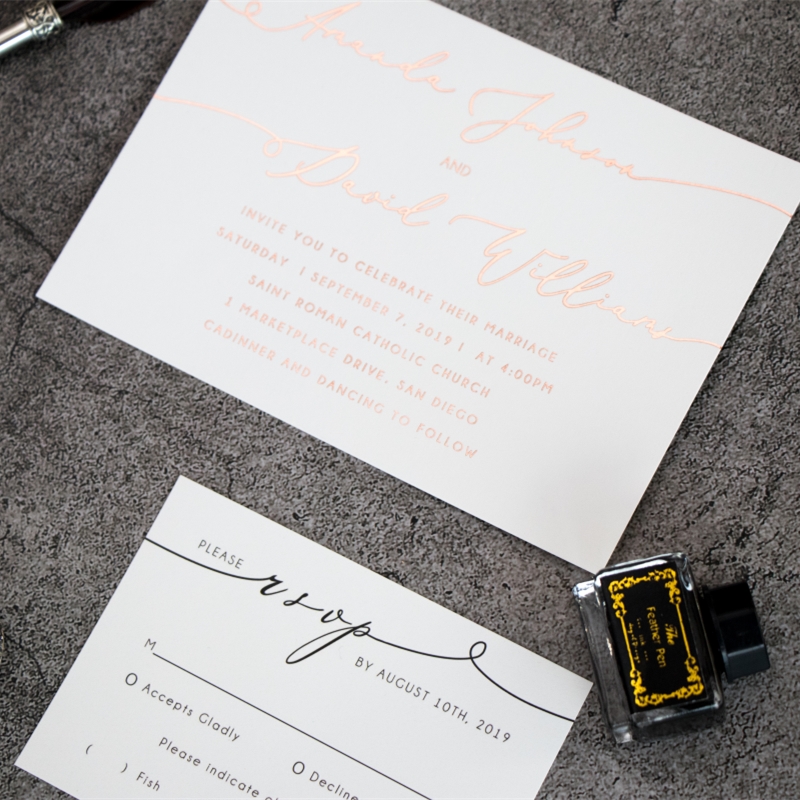 Amanda Johnson
AND
David Williams
INVITE YOU TO CELEBRATE THEIR MARRIAGE
SATURDAY | SEPTEMBER 7, 2019 | AT 4:00PM
SAINT ROMAN CATHOLIC CHURCH
1 MARKETPLACE DRIVE, SAN DIEGO
CADINNER AND DANCING TO FOLLOW
PLEASE
rsvp
BY AUGUST 10TH, 2019
M
Accepts Gladly
Decline
Please indicate
( ) Fish
The
Feather Pen